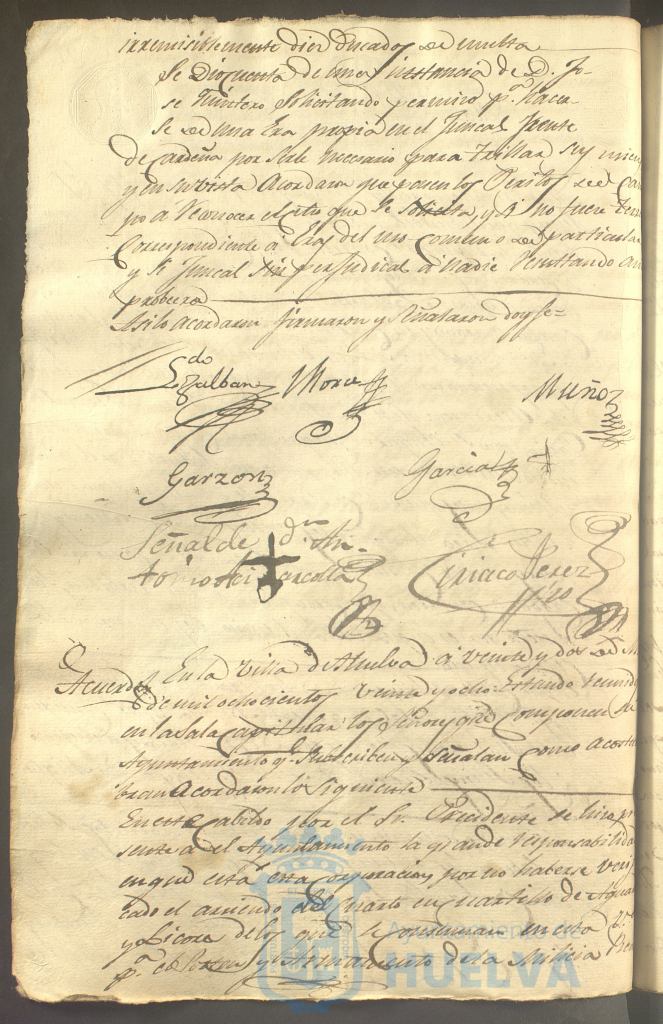 irremisiblemente diez Ducados de multa
Se Dio cuenta de una instancia de D. Jo-
se Quintero Solicitando permiso pa. hacer
se de una Era propia en el Juncal frente
de Cardeña por serle necesario para trillar sus mieses
y en su vista Acordaron que pasen los Peritos de Cam
po a reconocer el sitio que se solicita, y si no fuere terreno
Correspondiente a Eras del uso comun o de particular
y si Juncal sin perjudicar a nadie resultando
Asi lo acordaron firmaron y señalaron doy fe=
Ldo
Zalban Mora Muñoz
Garzon Garcia
Señal de dn An-
tonio de
Ciriaco Perez
Acuerdo En la Villa de Huelva a veinte y dos de
de mil ochocientos veinte y ocho: Estando reunid
en la Sala capitular los Señores que componen
Ayuntamiento qe. subscriben y señalan como acostu
bran Acordaron lo siguiente
En este Cabildo por el Sr. Presidente se hizo pre
sente a el Ayuntamiento la grande responsabilida
en que está esta Corporacion por no haberse verifi
cado el arriendo del quarto en quartillo de Aguar
y Licores de los que se consuman en esta
pa. el y Armamento de la Milicia
Ayuntamiento de
HUELVA